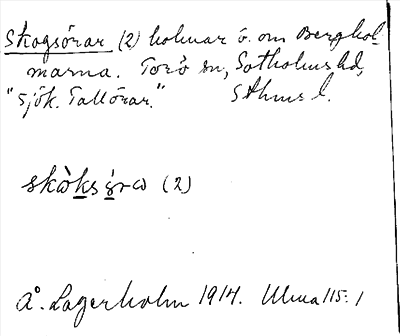 Skogsörar (2) holmar ö. om Berghol-
marna. Torö sn, Sotholms hd,
"sjök. Tallörar." Sthms l.
skòksǫ́ra (2)
Å. Lagerholm 1914. Ulma 115:1